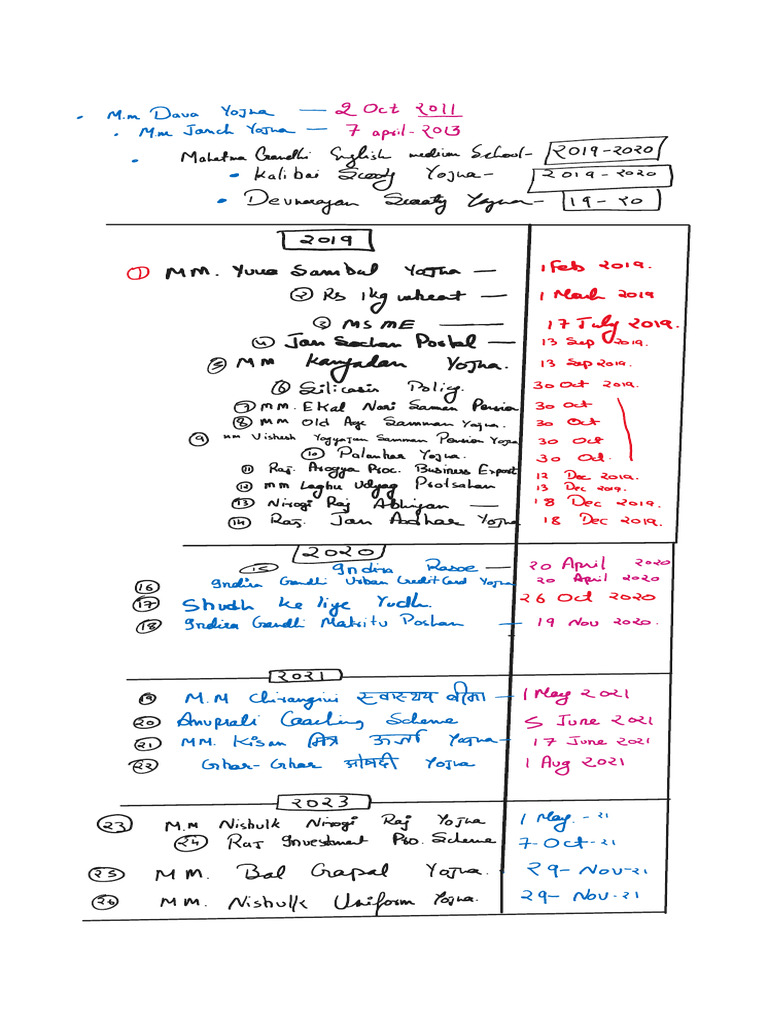 • M.m Dava Yojna — 2 Oct 2011
• M.m Janch Yojna — 7 april-2013
• Mahatma Gandhi English medium School- 2019-2020
• Kalibai Scooty Yojna- 2019-2020
• Devnarayan Scooty Yojna- 19-20
2019
① MM. Yuva Sambal Yojna — 1 Feb 2019.
② Rs 1kg wheat — 1 March 2019
③ MSME — 17 July 2019.
④ Jan Soochan Portal — 13 Sep 2019.
⑤ MM Kanyadan Yojna. 13 Sep 2019.
⑥ Silicosis Policy. 30 Oct 2019.
⑦ MM. Ekal Nari Saman Pension 30 Oct
⑧ MM Old Age Samman Yojna. 30 Oct
⑨ MM Vishesh Yogyajan Samman Pension Yojna 30 Oct
⑩ Palanhar Yojna. 30 Oct.
⑪ Raj. Arogya Proc. Business Export 12 Dec 2019.
⑫ MM Laghu Udyog Protsahan 13 Dec 2019.
⑬ Nirogi Raj Abhiyan — 18 Dec 2019.
⑭ Raj. Jan Aadhar Yojna 18 Dec 2019.
2020
⑮ Indira Rasoe — 20 April 2020
⑯ Indira Gandhi Urban Credit Card Yojna 20 April 2020
⑰ Shudh ke liye Yudh. 26 Oct 2020
⑱ Indira Gandhi Matritu Poshan — 19 Nov 2020.
2021
⑲ M.M Chirangivi स्वास्थय बीमा - 1 May 2021
⑳ Anuprati Coaching Scheme 5 June 2021
㉑ MM. Kisan मित्र ऊर्जा Yojna- 17 June 2021
㉒ Ghar-Ghar औषदी Yojna 1 Aug 2021
2023
㉓ M.M Nishulk Nirogi Raj Yojna 1 May.-21
㉔ Raj Investment Pro. Scheme 7-Oct-21
㉕ MM. Bal Gopal Yojna. 29-Nov-21
㉖ MM. Nishulk Uniform Yojna. 29-Nov-21